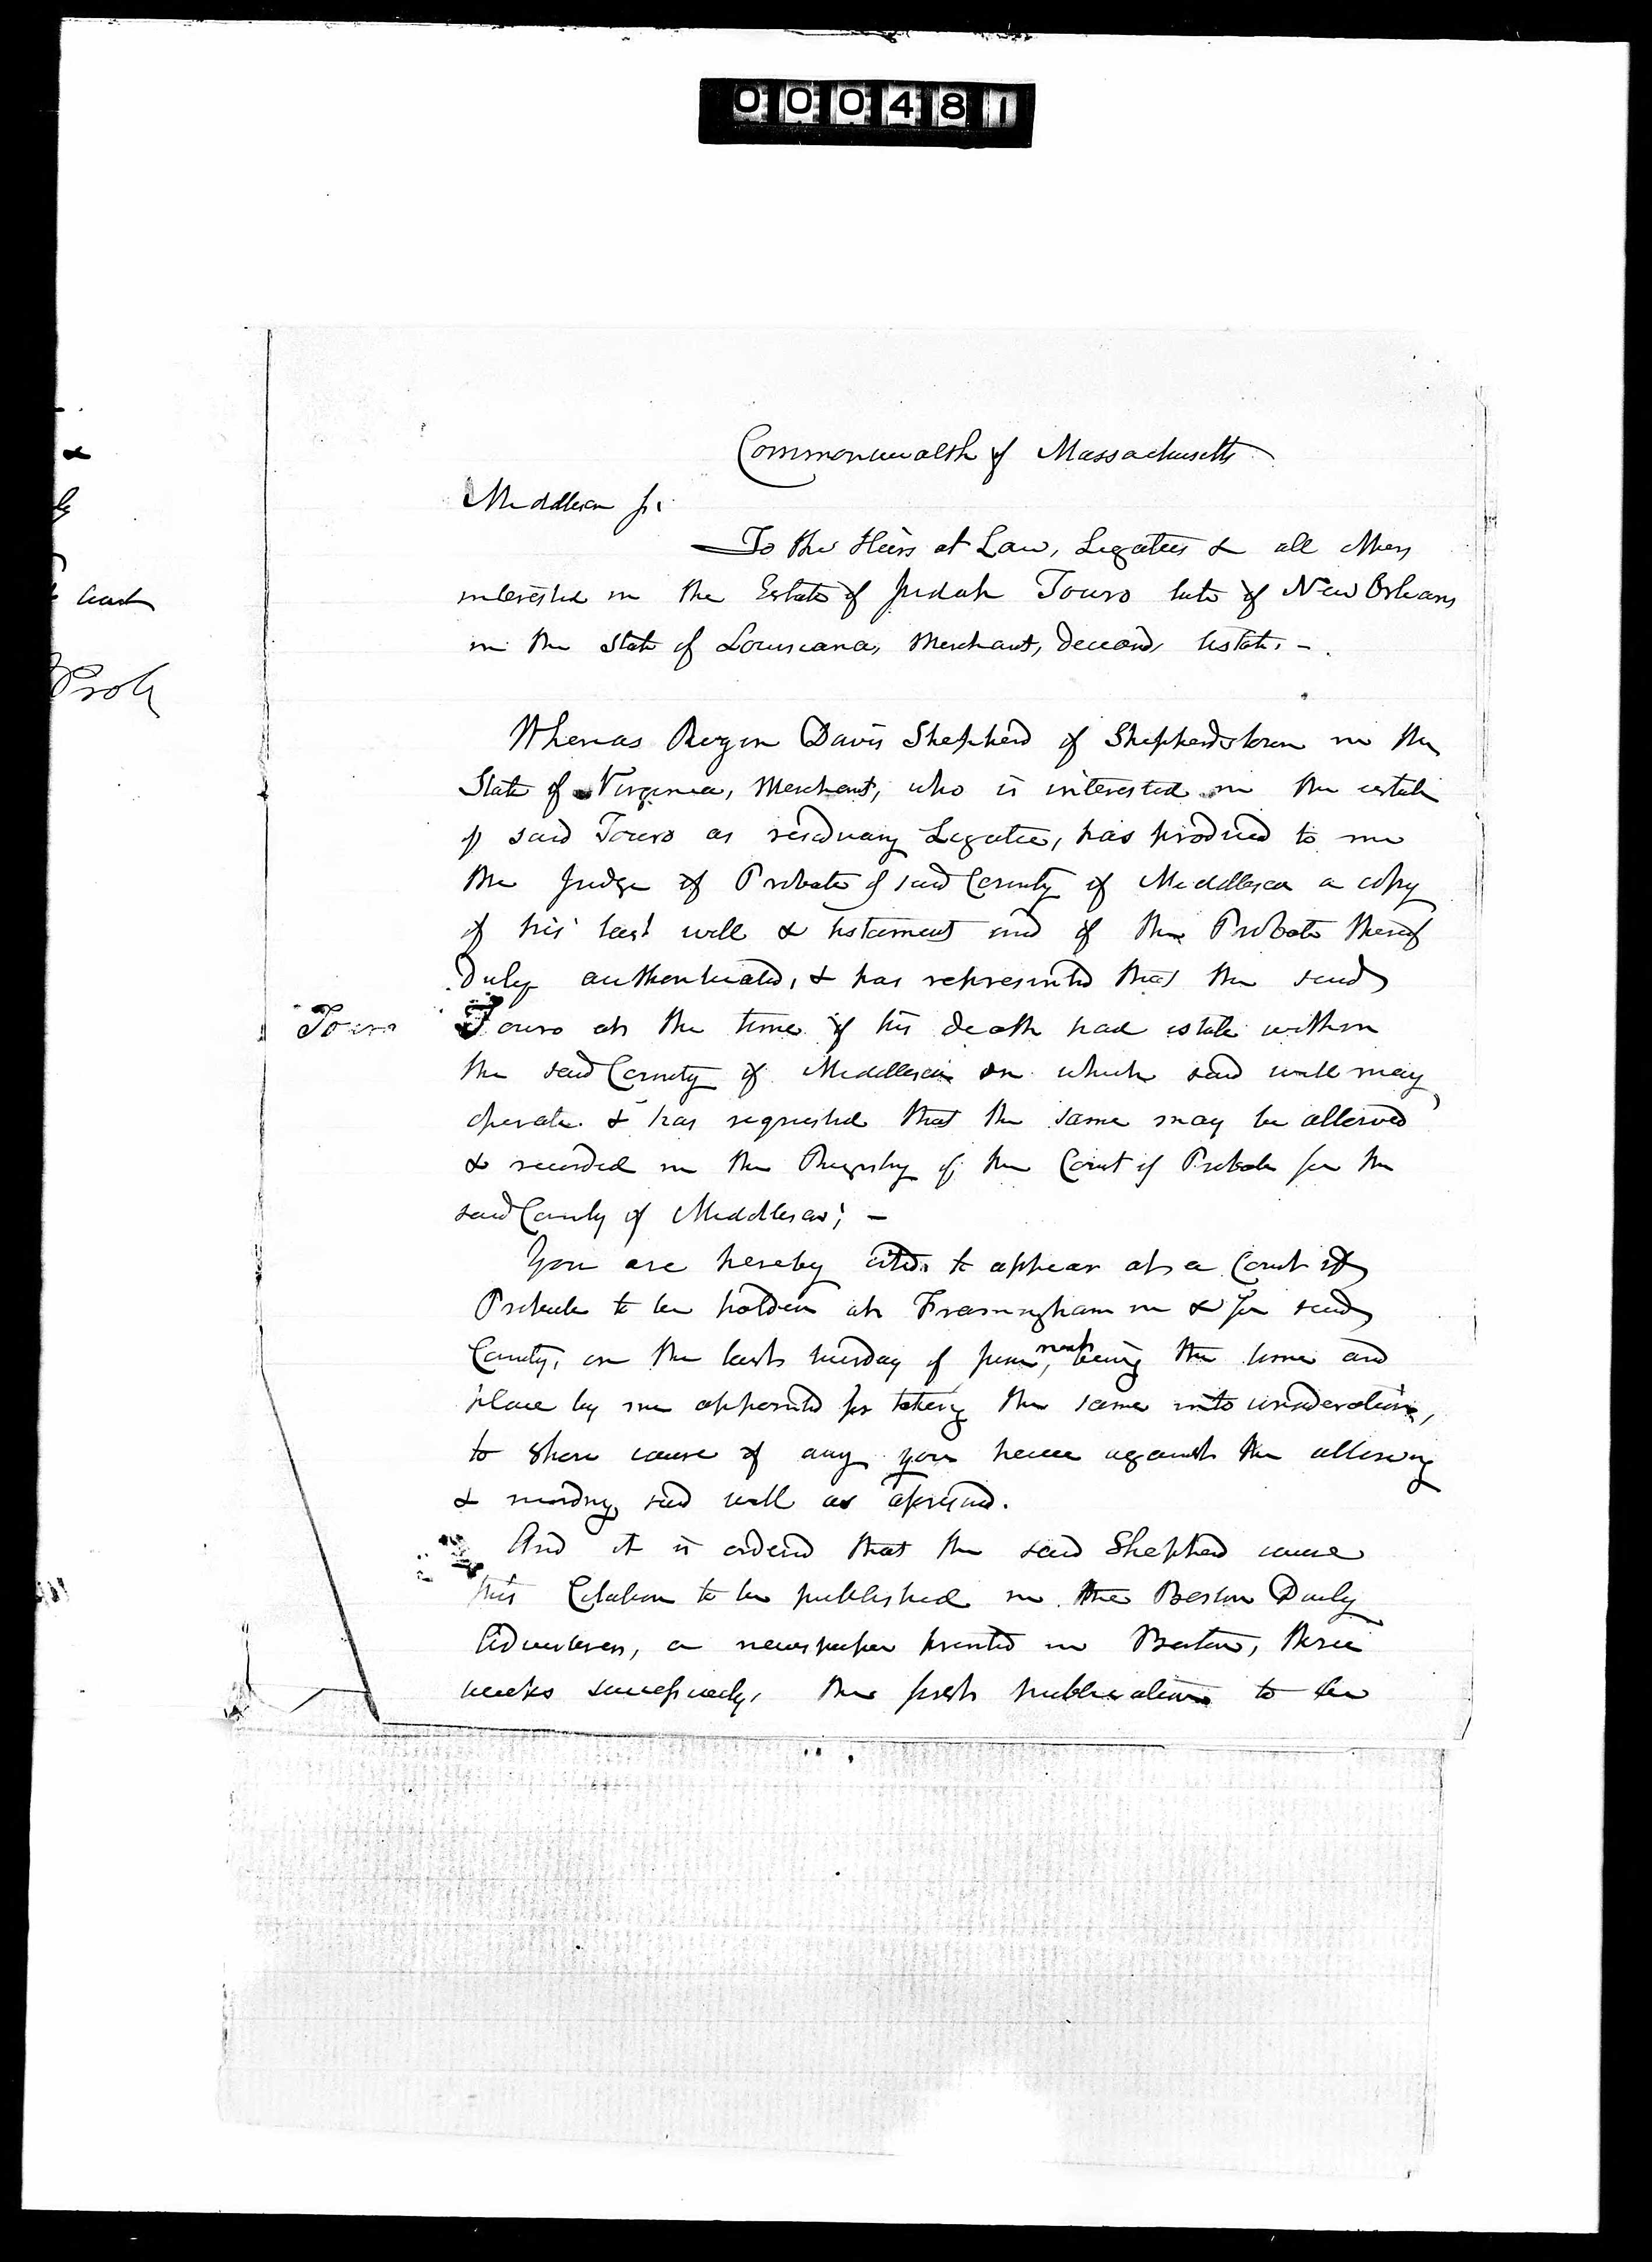 000481
Commonwealth of Massachusetts
Middlesex ss.
To the Heirs at Law, Legatees & all others
interested in the Estate of Judah Touro late of New Orleans
in the State of Louisiana, Merchant, deceased, testate. -
&
Whereas Rezin Davis Shepherd of Shepherdstown in the
State of Virginia, Merchant, who is interested in the estate
of said Touro as residuary Legatee, has produced to me
the Judge of Probate of said County of Middlesex a copy
of his last will & testament and of the Probate thereof
duly authenticated, & has represented that the said
Touro
Touro at the time of his death had estate within
the said County of Middlesex on which said will may
operate & has requested that the same may be allowed
& recorded in the Registry of the Court of Probate for the
said County of Middlesex; -
You are hereby cited to appear at a Court of
Probate to be holden at Framingham in & for said
County, on the last tuesday of June next, being the time and
place by me appointed for taking the same into consideration,
to show cause if any you have against the allowing
& recording said will as aforesaid.
And it is ordered that the said Shepherd cause
this Citation to be published in the Boston Daily
Advertiser, a newspaper printed in Boston, three
weeks successively, the first publication to be